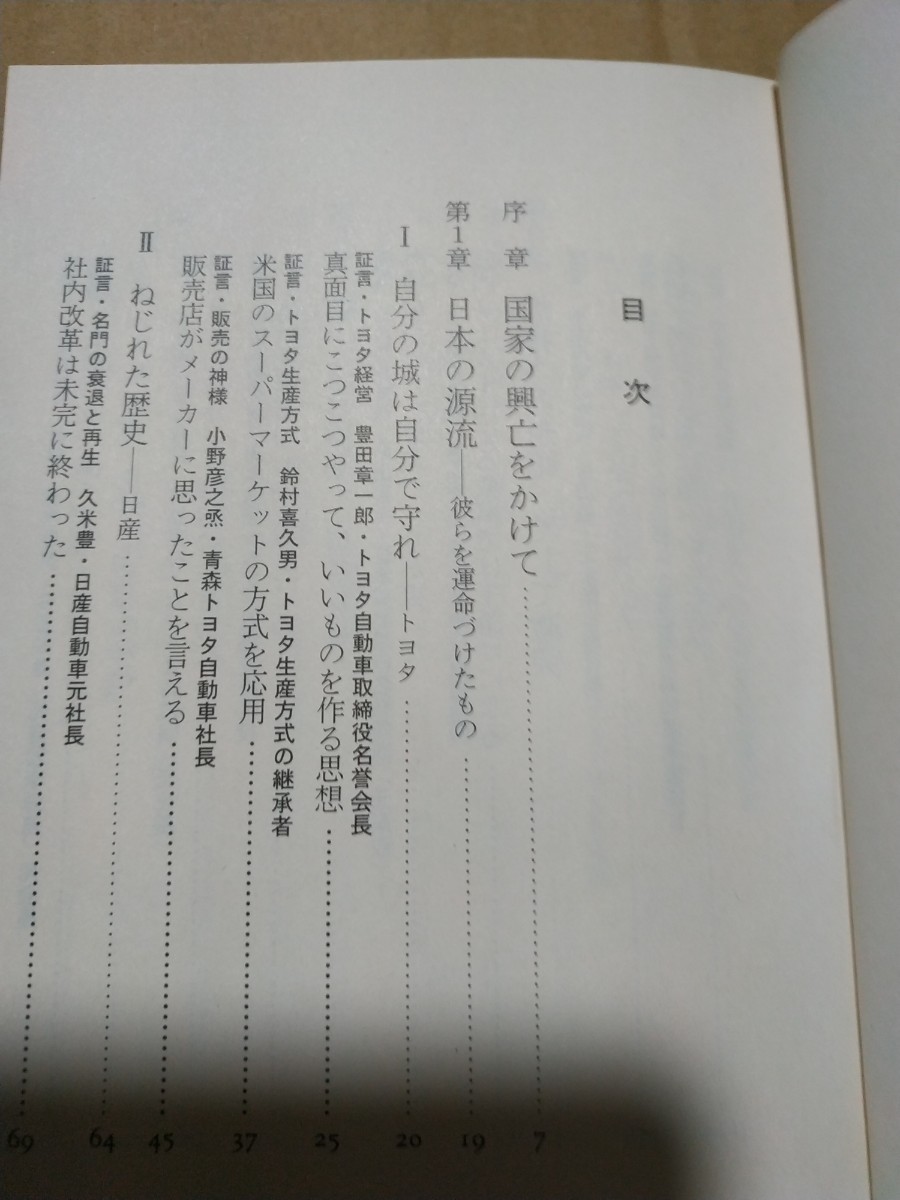 目次
序章 国家の興亡をかけて……………… 7
第1章 日本の源流――彼らを運命づけたもの……………… 19
Ⅰ 自分の城は自分で守れ――トヨタ……………… 20
証言・トヨタ経営 豊田章一郎・トヨタ自動車取締役名誉会長
真面目にこつこつやって、いいものを作る思想……………… 25
証言・トヨタ生産方式 鈴村喜久男・トヨタ生産方式の継承者
米国のスーパーマーケットの方式を応用……………… 37
証言・販売の神様 小野彦之烝・青森トヨタ自動車社長
販売店がメーカーに思ったことを言える……………… 45
Ⅱ ねじれた歴史――日産……………… 64
証言・名門の衰退と再生 久米豊・日産自動車元社長
社内改革は未完に終わった……………… 69